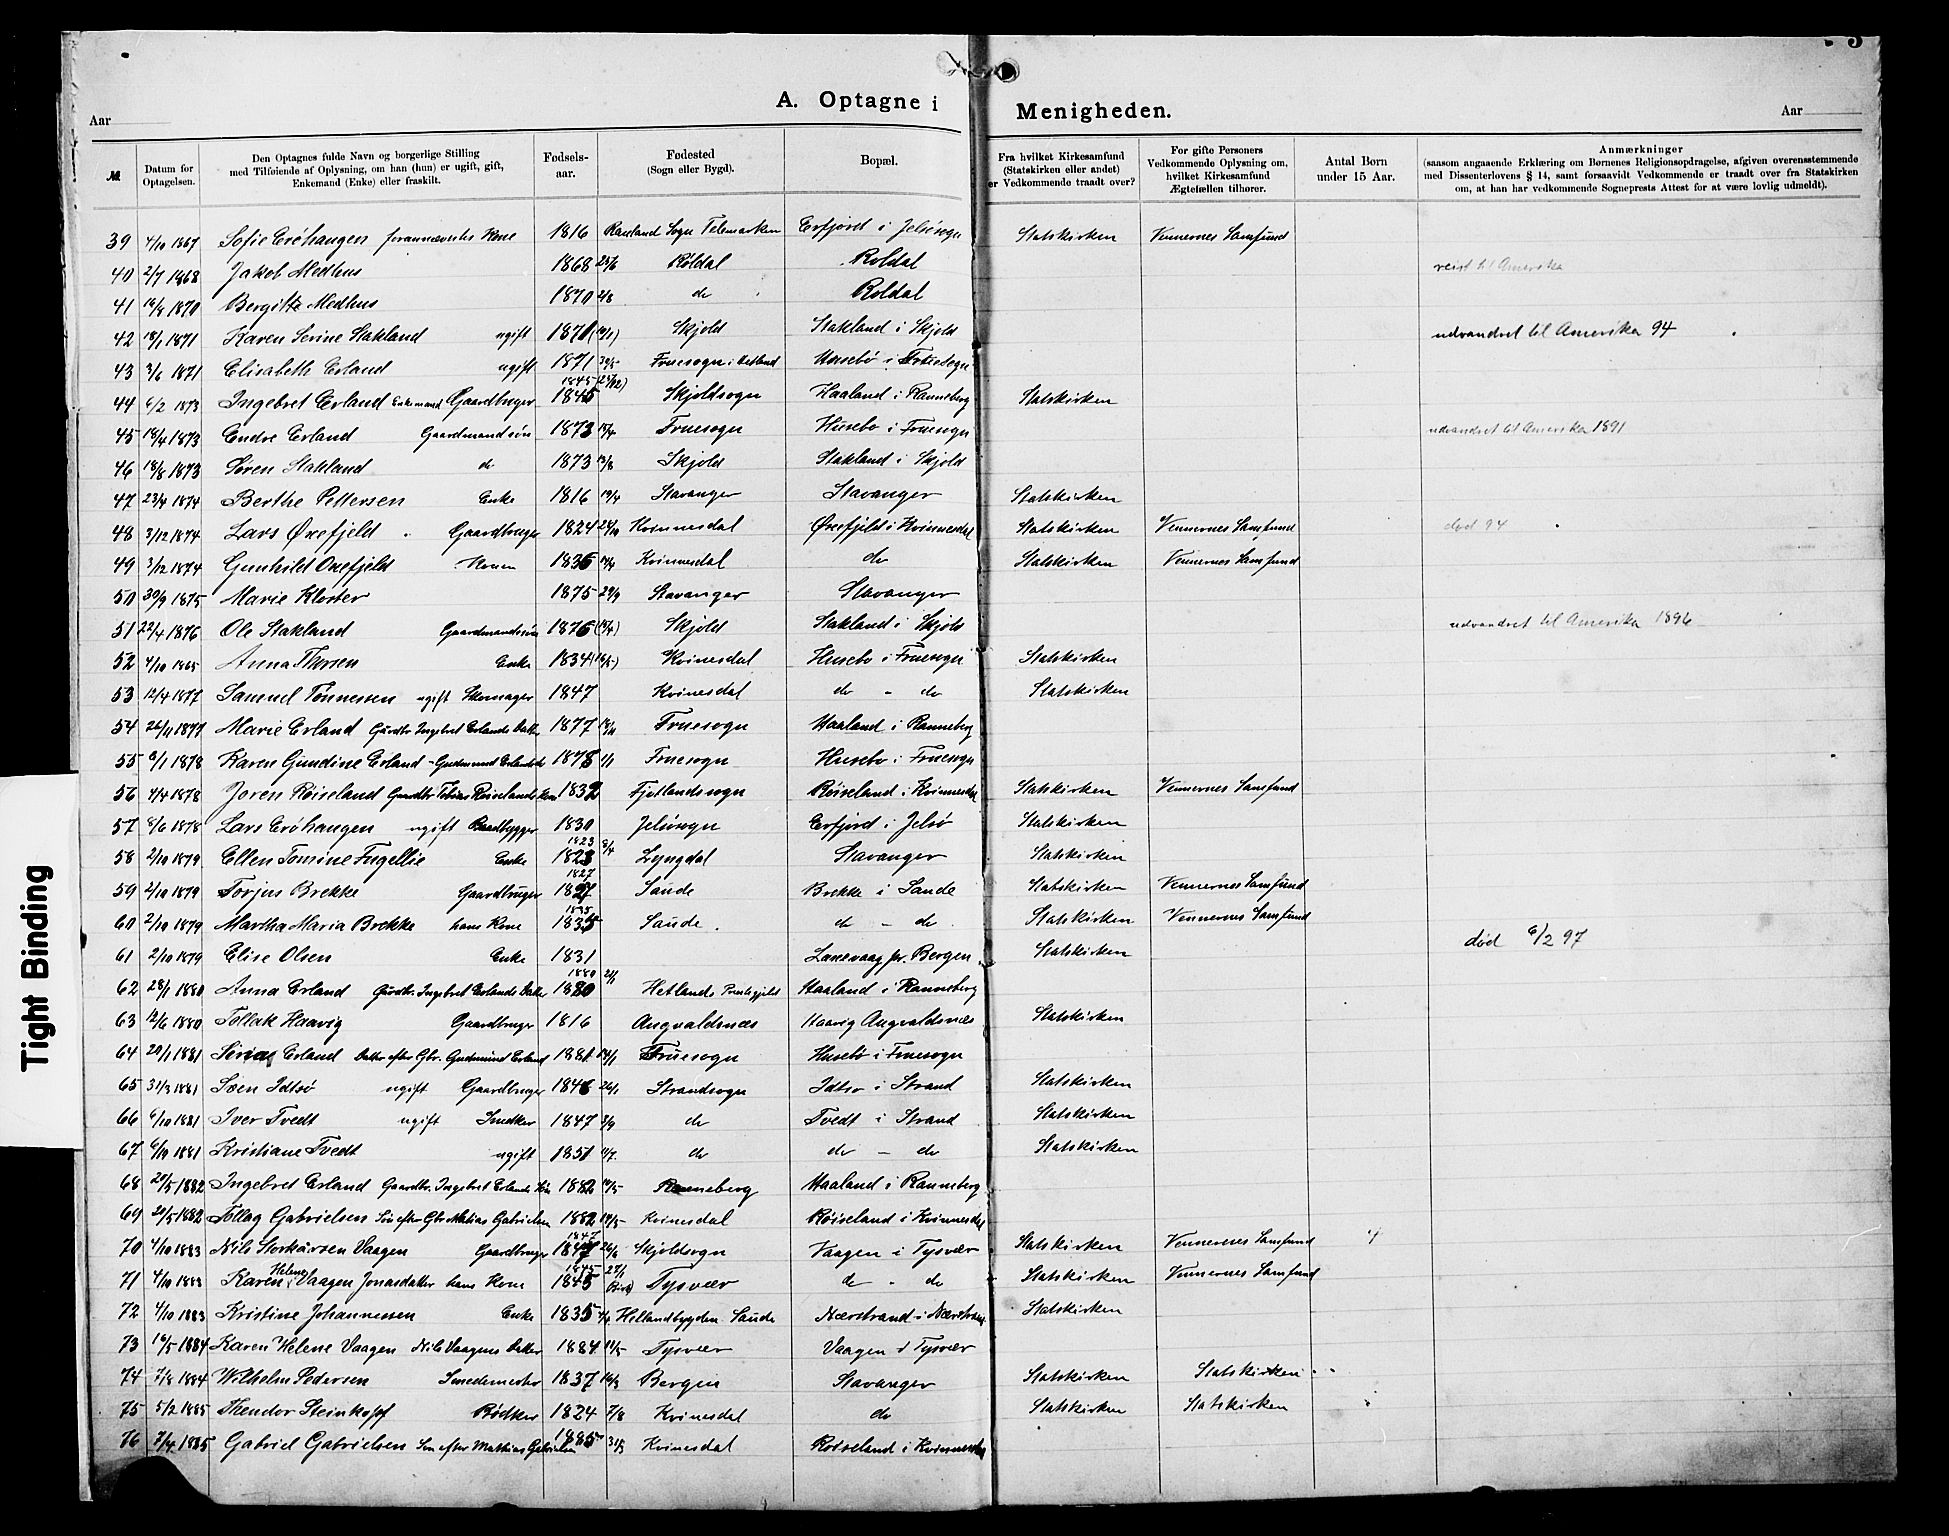 3
A. Optagne i Menigheden.
Aar
Aar
№
Datum for Optagelsen.
Den Optagnes fulde Navn og borgerlige Stilling med Tilføielse af Oplysning, om han (hun) er ugift, gift, Enkemand (Enke) eller fraskilt.
Fødsels-aar.
Fødested (Sogn eller Bygd).
Bopæl.
Fra hvilket Kirkesamfund (Statskirken eller andet) er Vedkommende traadt over?
For gifte Personers Vedkommende Oplysning om, hvilket Kirkesamfund Ægtefællen tilhører.
Antal Børn under 15 Aar.
Anmærkninger (saasom angaaende Erklæring om Børnenes Religionsopdragelse, afgiven overensstemmende med Dissenterlovens § 14, samt forsaavidt Vedkommende er traadt over fra Statskirken om, at han har vedkommende Sogneprests Attest for at være lovlig udmeldt).
39 4/10 1867 Sofie Eröhaugen forannævntes Kone 1816 Rauland Sogn Telemarken Erfjord i Jelsösogn Statskirken Vennernes Samfund
40 2/7 1868 Jakob Medhus 1868 23/6 Røldal Roldal reist til Amerika
41 1870 Bergitte Medhus 1870 2/8 do Roldal
42 18/1 1871 Karen Serine Stakland ugift 1871 Skjold Stakland i Skjold udvandret til Amerika 94
43 3/6 1871 Elisabeth Erland ugift 1871 30/5 Fruesogn i Hetland Husebö i Fruesogn
44 6/2 1873 Ingebret Erland Enkemand Gaardbruger 1845 1845 (27/12) Skjoldsogn Haaland i Ranneberg Statskirken
45 18/4 1873 Endre Erland Gaardmandssön 1873 Fruesogn Husebo i Fruesogn udvandret til Amerika 1891
46 18/8 1873 Sören Stakland do 1873 13/8 Skjold Stakland i Skjold
47 23/4 1874 Berthe Pettersen Enke 1816 19/4 Stavanger Stavanger Statskirken
48 3/12 1874 Lars Øxefjeld Gaardbruger 1824 24/10 Kvinnesdal Øxefjeld i Kvinnesdal Statskirken Vennernes Samfund död 94
49 3/12 1874 Gunhild Oxefjeld Konen 1836 Kvinnesdal do Statskirken Vennernes Samfund
50 30/9 1875 Marie Kloster 1875 29/9 Stavanger Stavanger
51 22/4 1876 Ole Stakland Gaardmandssön 1876 Skjold Stakland i Skjold udvandret til Amerika 1896
52 4/10 1865 Anna Thorsen Enke 1834 Kvinesdal Husebo i Fruesogn Statskirken
53 12/4 1877 Samuel Tønnessen ugift Skomager 1847 Kvinesdal do " do Statskirken
54 26/11 1877 Marie Erland Gardbr Ingebret Erlands Datter 1877 Fruesogn Haaland i Ranneberg
55 6/1 1878 Karen Gundine Erland 1878 1/1 Fruesogn Husebo i Fruesogn
56 4/4 1878 Joren Röiseland Gaardbr Tobias Röiselands Kone 1832 Fjotlandssogn Röiseland i Kvinnesdal Statskirken Vennernes Samfund
57 8/6 1878 Lars Eröhaugen ugift 1830 Jelsösogn Erfjord i Jelsö Statskirken
58 2/10 1879 Ellen Tomine Fugellie Enke 1823 1823 8/4 Lyngdal Stavanger Statskirken
59 2/10 1879 Torjus Brekke Gaardbruger 1827 1827 Saude Brekke i Sande Statskirken Vennernes Samfund
60 2/10 1879 Martha Maria Brekke hans Kone 1835 1835 Saude do - do Statskirken Vennernes Samfund
61 2/10 1879 Elise Olsen Enke 1831 Laxevaag pr. Bergen Statskirken död 6/2 97
62 28/1 1880 Anna Erland Gardbr. Ingebret Erlands Datter 1880 1880 21/1 Hetlands Prestegjeld Haaland i Ranneberg
63 12/6 1880 Tollak Haavig Gaardbruger 1816 Augvaldsnæs Haavig Augvaldsnæs Statskirken
64 20/1 1881 Serine Erland Datter efter Gbr. Gudmund Erland 1881 Fruesogn Husebö i Fruesogn
65 31/3 1881 Sven Idtsö ugift Gaardbruger 1846 26/1 Strandsogn Idtso i Strand Statskirken
66 6/10 1881 Iver Tvedt ugift Snedker 1847 3/9 do Tvedt i Strand Statskirken
67 6/10 1881 Kristiane Tvedt ugift 1851 do do - do Statskirken
68 29/5 1882 Ingebret Erland Gaardbr. Ingebret Erlands Sön 1882 Ranneberg Haaland i Ranneberg
69 20/5 1882 Tollag Gabrielsen Sön efter Gbr Matias Gabrielsen 1882 Kvinesdal Röiseland i Kvinnesdal
70 4/10 1883 Nils Storkarsen Vaagen Gaardbruger 1847 1847 26/6 Skjoldsogn Vaagen i Tysvær Statskirken Vennernes Samfund 4
71 4/10 1883 Karen Helene Vaagen Jonasdatter hans Kone 1845 1845 27/1 Tysvær do " do Statskirken Vennernes Samfund
72 4/10 1883 Kristine Johannessen Enke 1835 Hellandbygden Saude Nærstrand i Nærstrand Statskirken
73 16/5 1884 Karen Helene Vaagen Nils Vaagens Datter 1884 11/5 Tysvær Vaagen i Tysvær
74 7/8 1884 Wilhelm Pedersen Smedemester 1837 Bergen Stavanger Statskirken Statskirken
75 5/2 1885 Theodor Steinkopf Bödker 1824 7/8 Kvinesdal do Statskirken Statskirken
76 7/4 1885 Gabriel Gabrielsen Sön efter Mathias Gabrielsen 1885 31/3 Kvinesdal Roiseland i Kvinnesdal
Tight Binding